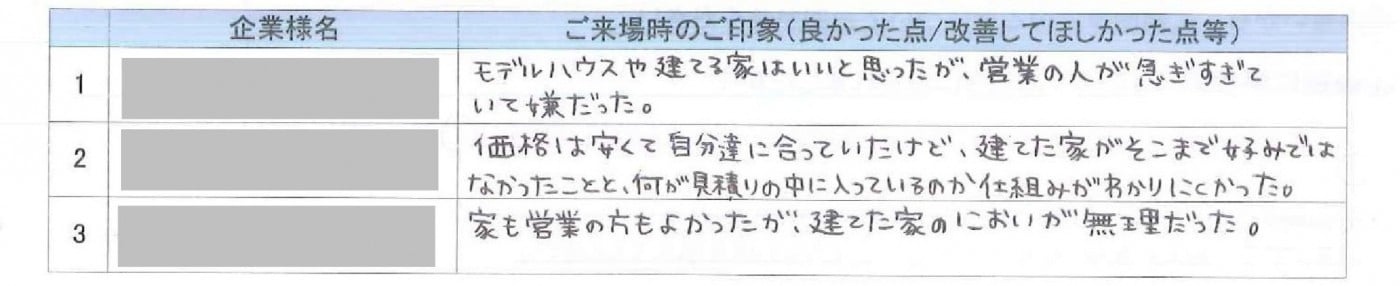 企業様名 ご来場時のご印象(良かった点/改善してほしかった点等)
1 モデルハウスや建てる家はいいと思ったが、営業の人が急ぎすぎて
いて嫌だった。
2 価格は安くて自分達に合っていたけど、建てた家がそこまで好みでは
なかったことと、何が見積りの中に入っているのか仕組みがわかりにくかった。
3 家も営業の方もよかったが、建てた家のにおいが無理だった。